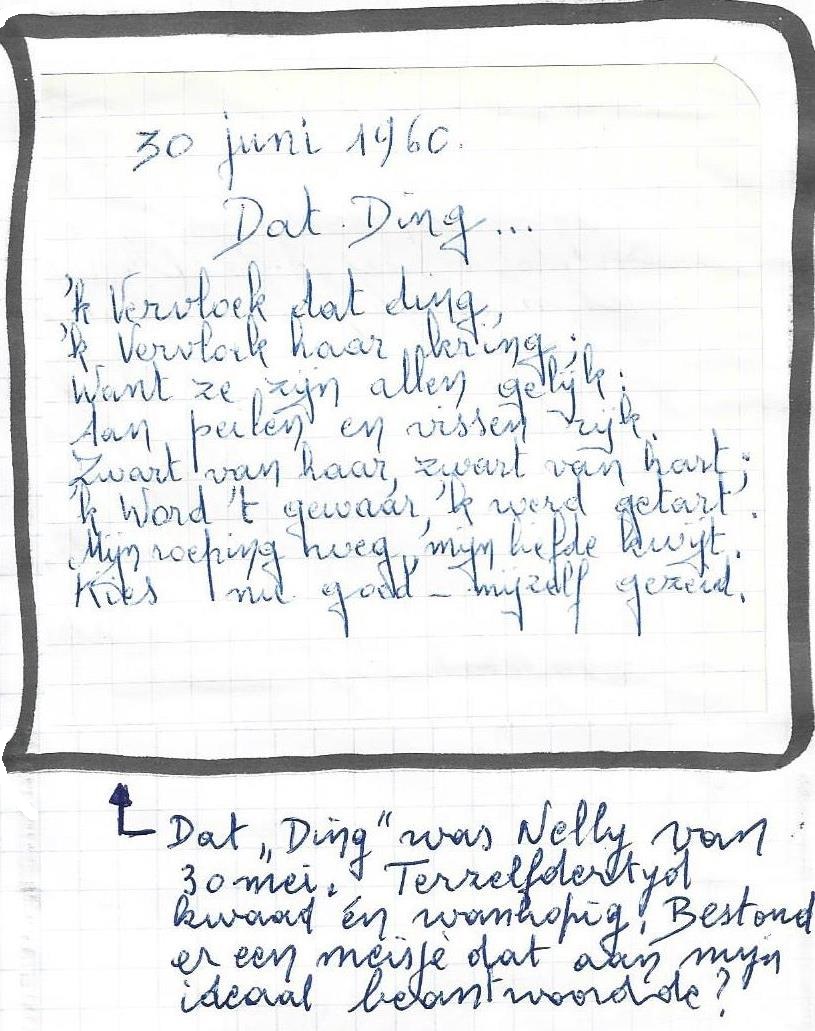 30 juni 1960.
Dat Ding...
'k Vervloek dat ding,
'k Vervloek haar kring;
Want ze zijn allen gelijk:
Aan peilen en vissen rijk.
Zwart van haar, zwart van hart;
'k Word 't gewaar, 'k werd getart.
Mijn roeping weg, mijn liefde kwijt.
Kies nu goed - mijzelf gezeid.
Dat „Ding" was Nelly van
30 mei. Terzelfdertijd
kwaad én wanhopig! Bestond
er een meisje dat aan mijn
ideaal beantwoordde?